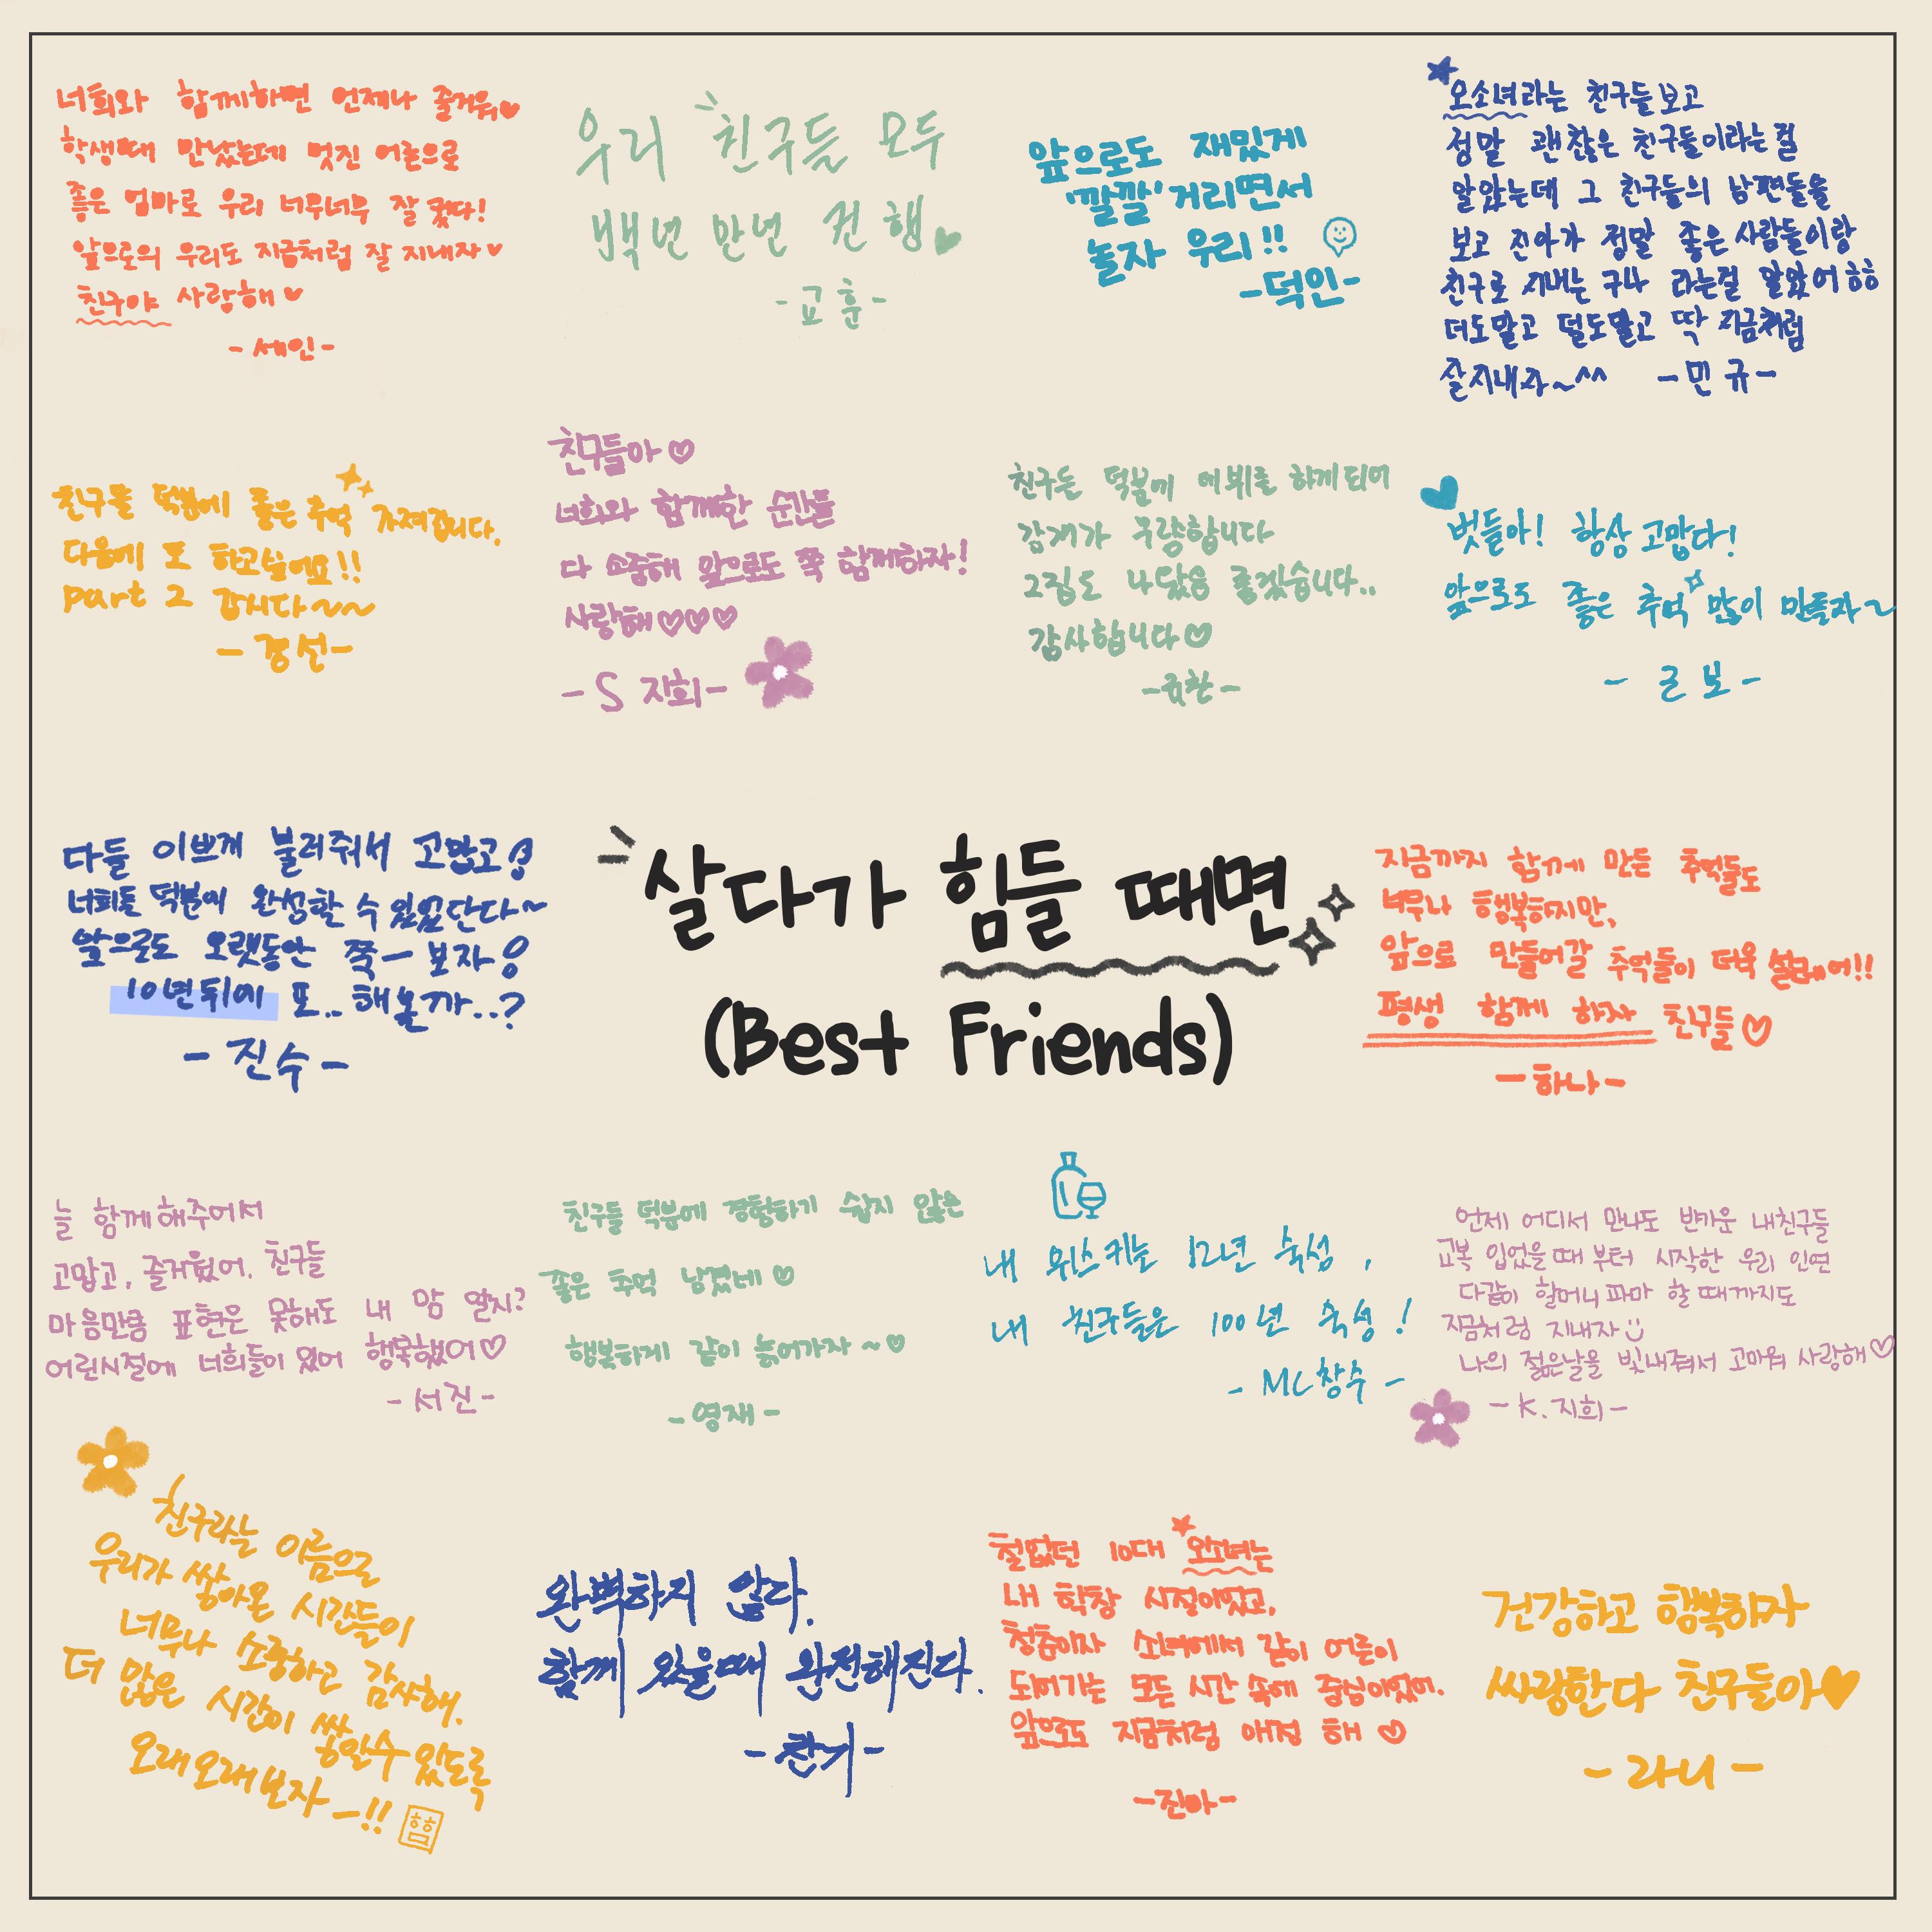 너희와 함께하면 언제나 즐거워
학생때 만났는데 멋진 어른으로
좋은 엄마로 우리 너무너무 잘 컸다!
앞으로의 우리도 지금처럼 잘 지내자
친구야 사랑해
-세인-
우리 친구들 모두
백년 만년 컨행
-교훈-
앞으로도 재밌게
'깔깔'거리면서
놀자 우리!!
-덕인-
오소녀라는 친구들보고
정말 괜찮은 친구들이라는걸
알았는데 그 친구들의 남편들을
보고 진아가 정말 좋은사람들이랑
친구로 지내는구나 라는걸 알았어ㅎㅎ
더도말고 덜도말고 딱 지금처럼
잘지내자~^^ -민규-
친구들 덕분에 좋은추억 가져갑니다.
다음에 또 하고싶어요!!
part 2 갑시다~~
-경선-
친구들아
너희와 함께한 순간들
다 소중해 앞으로도 쭉 함께하자!
사랑해
-S 지희-
친구들 덕분에 데뷔를 하게되어
감개가 무량합니다
그집도 나왔음 좋겠습니다..
감사합니다
벗들아! 항상 고맙다!
앞으로도 좋은 추억 많이 만들자~
-글보-
다들 이쁘게 불러줘서 고맙고
너희들 덕분에 완성할 수 있었단다~
앞으로도 오랫동안 쭉- 보자
10년뒤에 또.. 해볼까..?
-진수-
살다가 힘들 때면
(Best Friends)
지금까지 함께 만든 추억들도
너무나 행복하지만,
앞으로 만들어갈 추억들이 더욱 설레어!!
평생 함께 하자 친구들
-하나-
늘 함께해주어서
고맙고, 즐거웠어. 친구들
마음만큼 표현은 못해도 내 맘 알지?
어린시절에 너희들이 있어 행복했어
-서진-
친구들 덕분에 경험하기 쉽지 않은
좋은 추억 남겼네
행복하게 같이 늙어가자~
-영재-
내 위스키는 12년 숙성,
내 친구들은 100년 숙성!
-MC창수-
언제 어디서 만나도 반가운 내친구들
교복 입었을때부터 시작한 우리 인연
다같이 할머니파마 할때까지도
지금처럼 지내자
나의 젊은날을 빛내줘서 고마워 사랑해
-K.지희-
친구라는 이름으로
우리가 쌓아온 시간들이
너무나 소중하고 감사해.
더 많은 시간이 쌓일수있도록
오래오래보자-!!
완벽하지 않다.
함께 있을때 완전해진다.
-찬기-
철없던 10대 오소녀는
내 학창 시절이었고,
청춘이자 소녀에서 같이 어른이
되어가는 모든 시간 속에 중심이었어.
앞으로도 지금처럼 애정 해
-진아-
건강하고 행복하자
싸랑한다 친구들아
-라니-